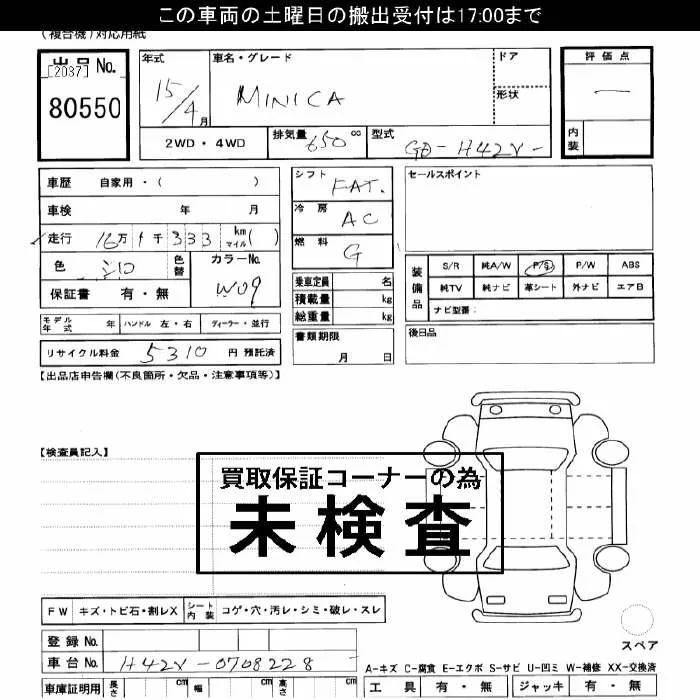 この車両の土曜日の搬出受付は17:00まで
(複合機)対応用紙
出品 No.
[2037]
80550
年式
15/4月
車名・グレード
MINICA
ドア
形状
評価点
内装
2WD・4WD
排気量 650 cc
型式 GD-H42V-
車歴 自家用・( )
車検 年 月
走行 16万 1千 333 km マイル( )
色 シロ
色替
カラーNo. W09
保証書 有・無
シフト FAT.
冷房 AC
燃料 G
乗車定員 名
積載量 kg
総重量 kg
セールスポイント
装備品
S/R 純A/W P/S P/W ABS
純TV 純ナビ 革シート 外ナビ エアB
ナビ型番:
モデル年式 年 ハンドル 左・右 ディーラー・並行
書類期限
月 日
後日品
リサイクル料金 5310 円 預託済
【出品店申告欄(不良箇所・欠品・注意事項等)】
【検査員記入】
買取保証コーナーの為
未検査
FW キズ・トビ石・割レX シート内装 コゲ・穴・汚レ・シミ・破レ・スレ
登録 No.
車台 No. H42V-0708228
スペア
A-キズ C-腐食 E-エクボ S-サビ U-凹ミ W-補修 XX-交換済
車庫証明用 長さ cm 幅 cm 高さ cm
工具 有・無 ジャッキ 有・無